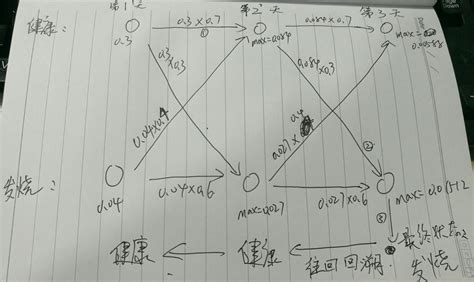 第1天 第2天 第3天
健康: 0.3 0.3×0.7 ① max=0.084 0.084×0.7 max=
0.00588
0.3×0.3 0.084×0.3
0.04×0.4 0.027× 0.4 ②
发烧: 0.04 0.04×0.6 max=0.027 0.027×0.6 max=0.01512
③
健康 健康 往回回溯 最终状态
发烧